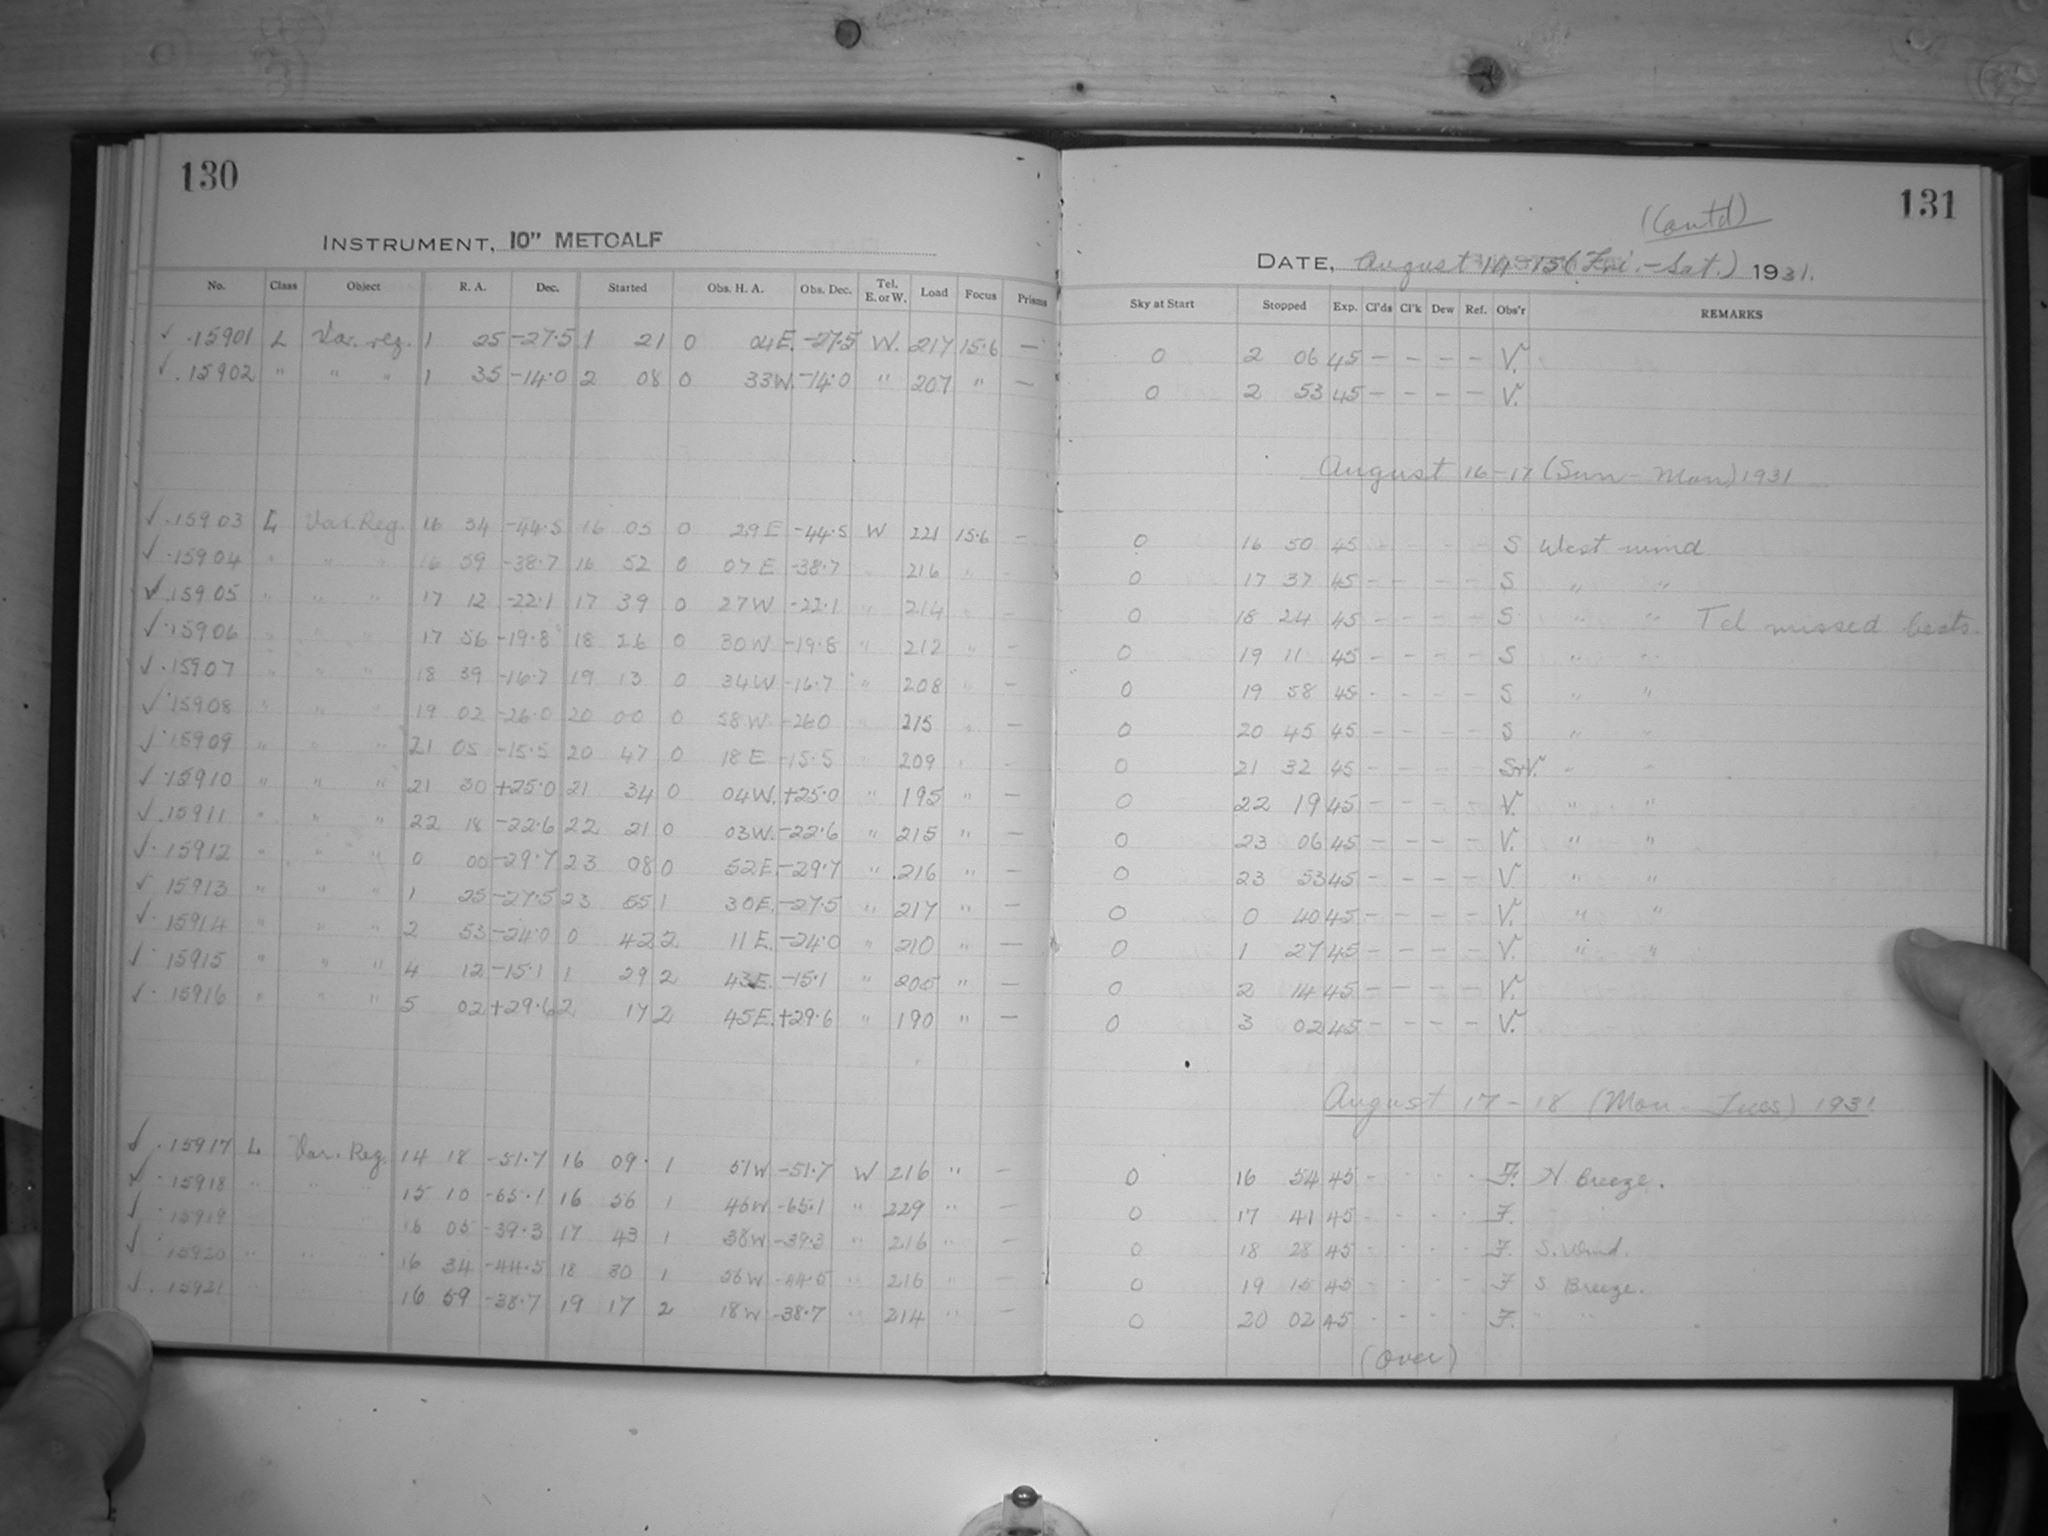 130
INSTRUMENT, 10" METCALF
No. Class Object R. A. Dec. Started Obs. H. A. Obs. Dec. Tel. E. or W. Load Focus Prisms
✓ 15901 L Var. reg. 1 25 -27.5 1 21 0 04E. -27.5 W. 217 15.6 —
✓ 15902 " " " 1 35 -14.0 2 08 0 33W. -14.0 " 207 " —
✓ 15903 L Var. Reg. 16 34 -44.5 16 05 0 29E -44.5 W 221 15.6 -
✓ 15904 " " " 16 59 -38.7 16 52 0 07E -38.7 " 216 " -
✓ 15905 " " " 17 12 -22.1 17 39 0 27W -22.1 " 214 " -
✓ 15906 " " " 17 56 -19.8 18 26 0 30W -19.8 " 212 " -
✓ 15907 " " " 18 39 -16.7 19 13 0 34W -16.7 " 208 " -
✓ 15908 " " " 19 02 -26.0 20 00 0 58W -260 215 " -
✓ 15909 " " " 21 05 -15.5 20 47 0 18E -15.5 209 " -
✓ 15910 " " " 21 30 +25.0 21 34 0 04W. +25.0 " 195 " —
✓ 15911 " " " 22 18 -22.6 22 21 0 03W. -22.6 " 215 " —
✓ 15912 " " " 0 00 -29.7 23 08 0 52E. -29.7 " 216 " —
✓ 15913 " " " 1 25 -27.5 23 55 1 30E. -27.5 " 217 " —
✓ 15914 " " " 2 53 -24.0 0 42 2 11E. -24.0 " 210 " —
✓ 15915 " " " 4 12 -15.1 1 29 2 43E. -15.1 " 205 " —
✓ 15916 " " " 5 02 +29.6 2 17 2 45E. +29.6 " 190 " —
✓ 15917 L Var. Reg. 14 18 -51.7 16 09 1 51W -51.7 W 216 " -
✓ 15918 " " " 15 10 -65.1 16 56 1 46W -65.1 " 229 " -
✓ 15919 16 05 -39.3 17 43 1 38W -39.3 " 216 " -
✓ 15920 " " " 16 34 -44.5 18 30 1 56W -44.5 " 216 " -
✓ 15921 16 59 -38.7 19 17 2 18W -38.7 " 214 " -
131
(Contd)
DATE, August 14-15 (Fri.-Sat.) 1931.
Sky at Start Stopped Exp. Cl'ds Cl'k Dew Ref. Obs'r REMARKS
0 2 06 45 - - - - V.
0 2 53 45 - - - - V.
August 16-17 (Sun-Mon) 1931
0 16 50 45 - - - - S West wind
0 17 37 45 - - - - S " "
0 18 24 45 - - - - S " " Tel missed beats.
0 19 11 45 - - - - S " "
0 19 58 45 - - - - S " "
0 20 45 45 - - - - S " "
0 21 32 45 - - - - S+V. " "
0 22 19 45 - - - - V. " "
0 23 06 45 - - - - V. " "
0 23 53 45 - - - - V. " "
0 0 40 45 - - - - V. " "
0 1 27 45 - - - - V. " "
0 2 14 45 - - - - V.
0 3 02 45 - - - - V.
August 17-18 (Mon-Tues) 1931
0 16 54 45 - - - - F. N Breeze.
0 17 41 45 - - - - F.
0 18 28 45 - - - - F. S. Wind.
0 19 15 45 - - - - F S Breeze.
0 20 02 45 - - - - F. " "
(Over)